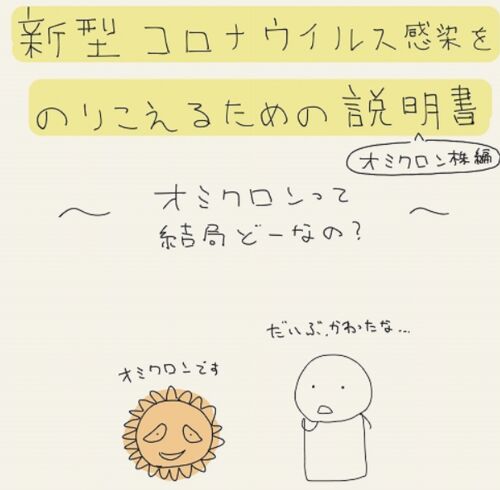 新型コロナウイルス感染を
のりこえるための説明書
オミクロン株編
〜 オミクロンって 〜
結局どーなの？
だいぶかわったな...
オミクロンです